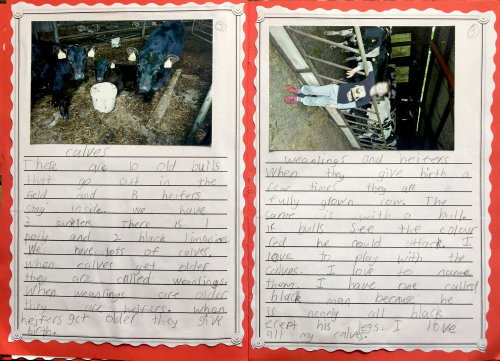 calves
There are 10 old bulls
that go out in the
field and 8 heifers
stay inside. we have
2 There is
polly and 2 black limousins.
We have lots of calves,
when calves get older
they are called weanlings.
When weanlings are older
they are heifers. when
heifers get older they give
birth.
weanlings and heifers
When they give birth a
few times they are a
fully grown cow. The
same is with a bull.
if bulls see the colour
red he could attack. I
love to play with the
calves. I love to name
them. I have one called
black man because he
is nearly all black
exept his legs. I love
all my calves.